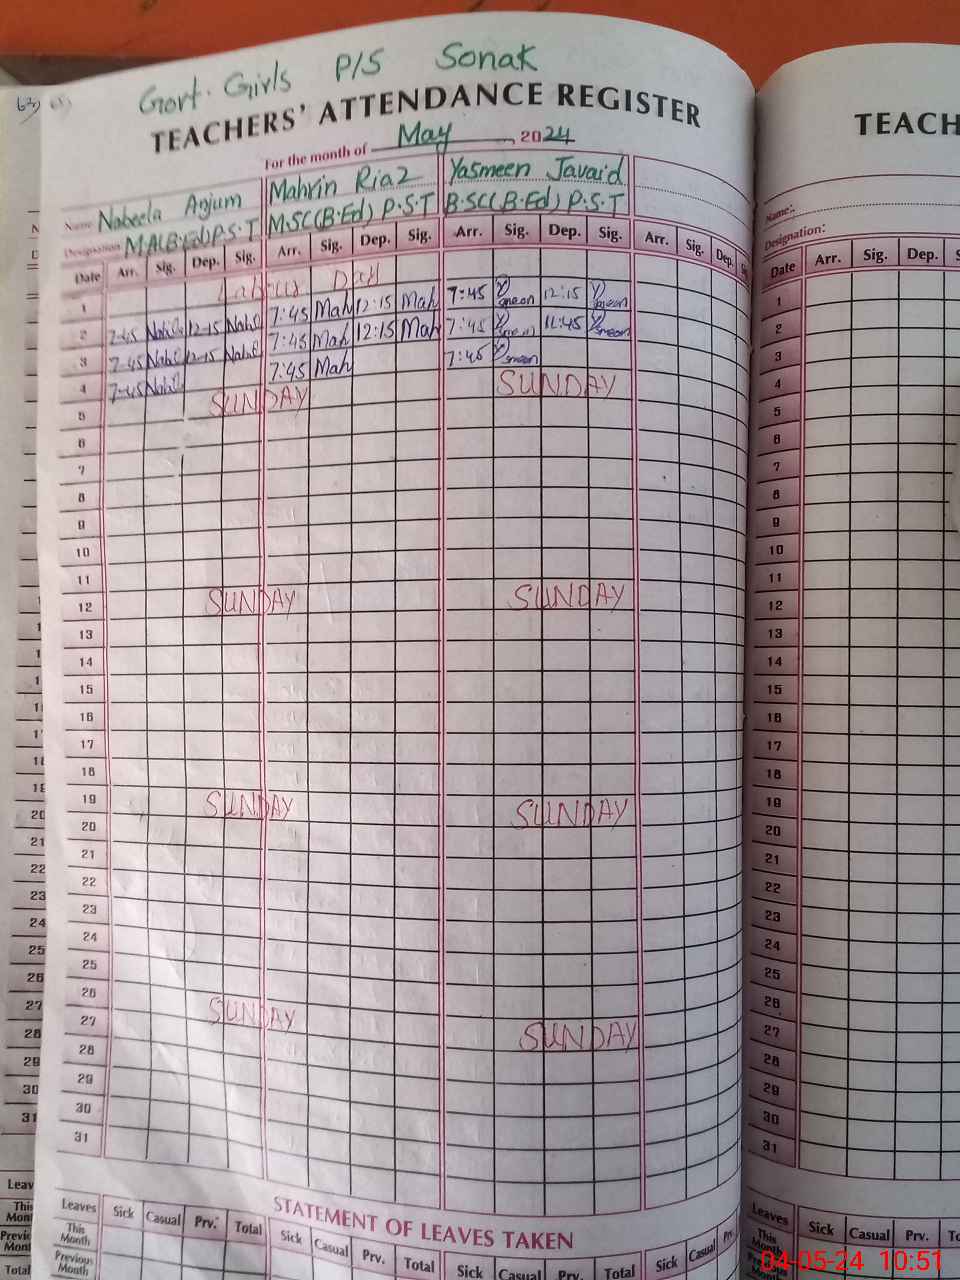 Govt. Girls P/S Sonak
TEACHERS' ATTENDANCE REGISTER
TEACH
For the month of May, 2024
Name Nabeela Anjum Mahrin Riaz Yasmeen Javaid
Name:
Designation M.A(B.Ed) P.S.T M.SC(B.Ed) P.S.T B.SC(B.Ed) P.S.T
Designation:
Date Arr. Sig. Dep. Sig. Arr. Sig. Dep. Sig. Arr. Sig. Dep. Sig. Arr. Sig. Dep.
Date Arr. Sig. Dep.
1 Labour Day
2 7-45 Nabi 12-15 Nabi 7:45 Mah 12:15 Mah 7:45 Ysmeen 12:15 Ysmeen
3 7-45 Nabi 12-15 Nabi 7:45 Mah 12:15 Mah 7:45 Ysmeen 11:45 Ysmeen
4 7-45 Nabi 7:45 Mah 7:45 Ysmeen
5 SUNDAY SUNDAY
6
7
8
9
10
11
12 SUNDAY SUNDAY
13
14
15
16
17
18
19 SUNDAY SUNDAY
20
21
22
23
24
25
26 SUNDAY SUNDAY
27
28
29
30
31
1
2
3
4
5
6
7
8
9
10
11
12
13
14
15
16
17
18
19
20
21
22
23
24
25
26
27
28
29
30
31
STATEMENT OF LEAVES TAKEN
Leaves Sick Casual Prv. Total Sick Casual Prv. Total Sick Casual Prv. Total Sick Casual
This Month
Previous Month
Leaves Sick Casual Prv.
This Month
Previous Month
04-05-24 10:51